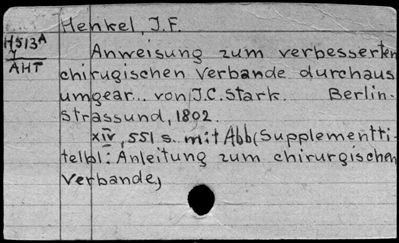 Henkel, J.F.
H513A
Y
AHT
Anweisung zum verbesserten
chirugischen Verbande durchaus
umgear... von J.C. Stark. Berlin-
Strassund, 1802.
XIV, 551 s. mit Abb(Supplementti-
telbl: Anleitung zum chirurgischen
Verbande)